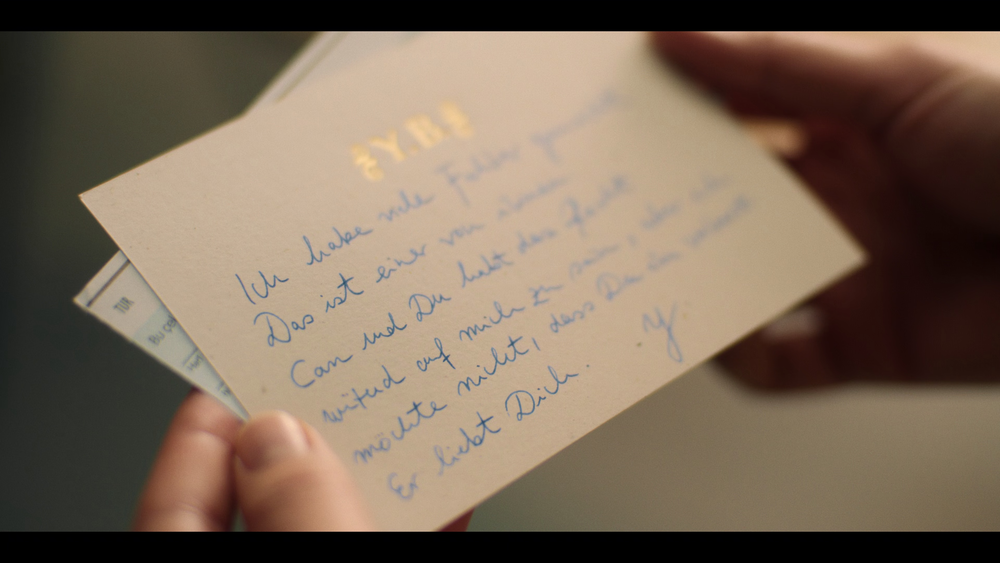 Y.B
Ich habe viele Fehler gemacht
Das ist einer von ihnen
Can und Du habt das Recht
wütend auf mich zu sein, aber ich
möchte nicht, dass Du ihn verlierst
Er liebt Dich.
Y.
TUR